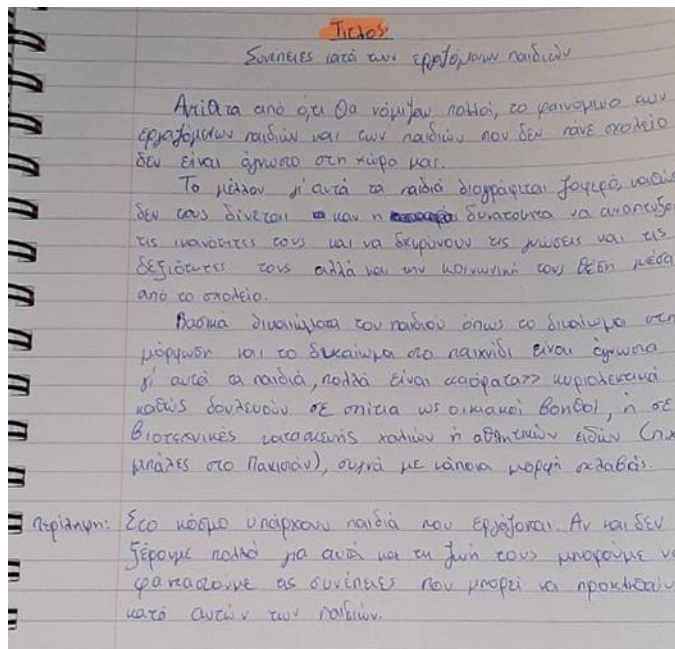 Τίτλος:
Συνέπειες κατά των εργαζόμενων παιδιών
Αντίθετα από ό,τι θα νόμιζαν πολλοί, το φαινόμενο των
εργαζόμενων παιδιών και των παιδιών που δεν πάνε σχολείο
δεν είναι άγνωστο στη χώρα μας.
Το μέλλον γι' αυτά τα παιδιά διαγράφεται ζοφερό, καθώς
δεν τους δίνεται καν η δυνατότητα να αναπτύξουν
τις ικανότητες τους και να διευρύνουν τις γνώσεις και τις
δεξιότητες τους αλλά και την κοινωνική τους θέση μέσα
από το σχολείο.
Βασικά δικαιώματα του παιδιού όπως το δικαίωμα στη
μόρφωση και το δικαίωμα στο παιχνίδι είναι άγνωστα
γι' αυτά τα παιδιά, πολλά είναι <<αόρατα>> κυριολεκτικά
καθώς δουλεύουν σε σπίτια ως οικιακοί βοηθοί, ή σε
βιοτεχνικές κατασκευής χαλιών ή αθλητικών ειδών (πχ
μπάλες στο Πακιστάν), συχνά με κάποια μορφή σκλαβιάς.
Περίληψη: Στο κόσμο υπάρχουν παιδιά που εργάζονται. Αν και δεν
ξέρουμε πολλά για αυτά και τη ζωή τους μπορούμε να
φανταστούμε τις συνέπειες που μπορεί να προκληθούν
κατά αυτών των παιδιών.